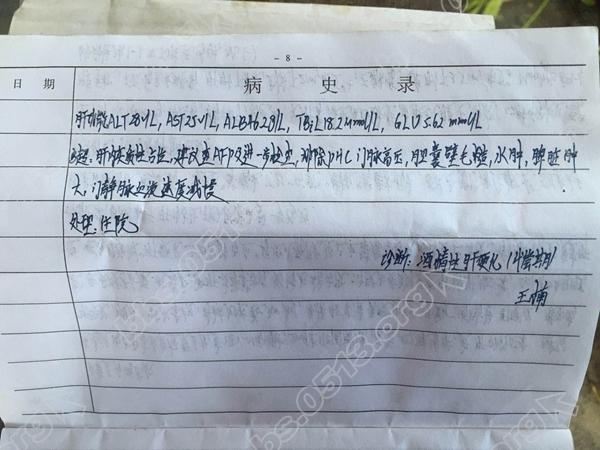 - 8 -
日 期 病 史 录
肝功能ALT28U/L, AST25U/L, ALB46.2g/L, TBiL18.2umol/L, GLU5.62mmol/L
B超:肝内实质性占位,建议查AFP及进一步检查,排除PHC门脉高压,胆囊壁毛糙,水肿,脾脏肿
大,门静脉血液速度减慢
处理:住院
诊断:酒精性肝硬化(代偿期)
王楠
bbs.0513.org